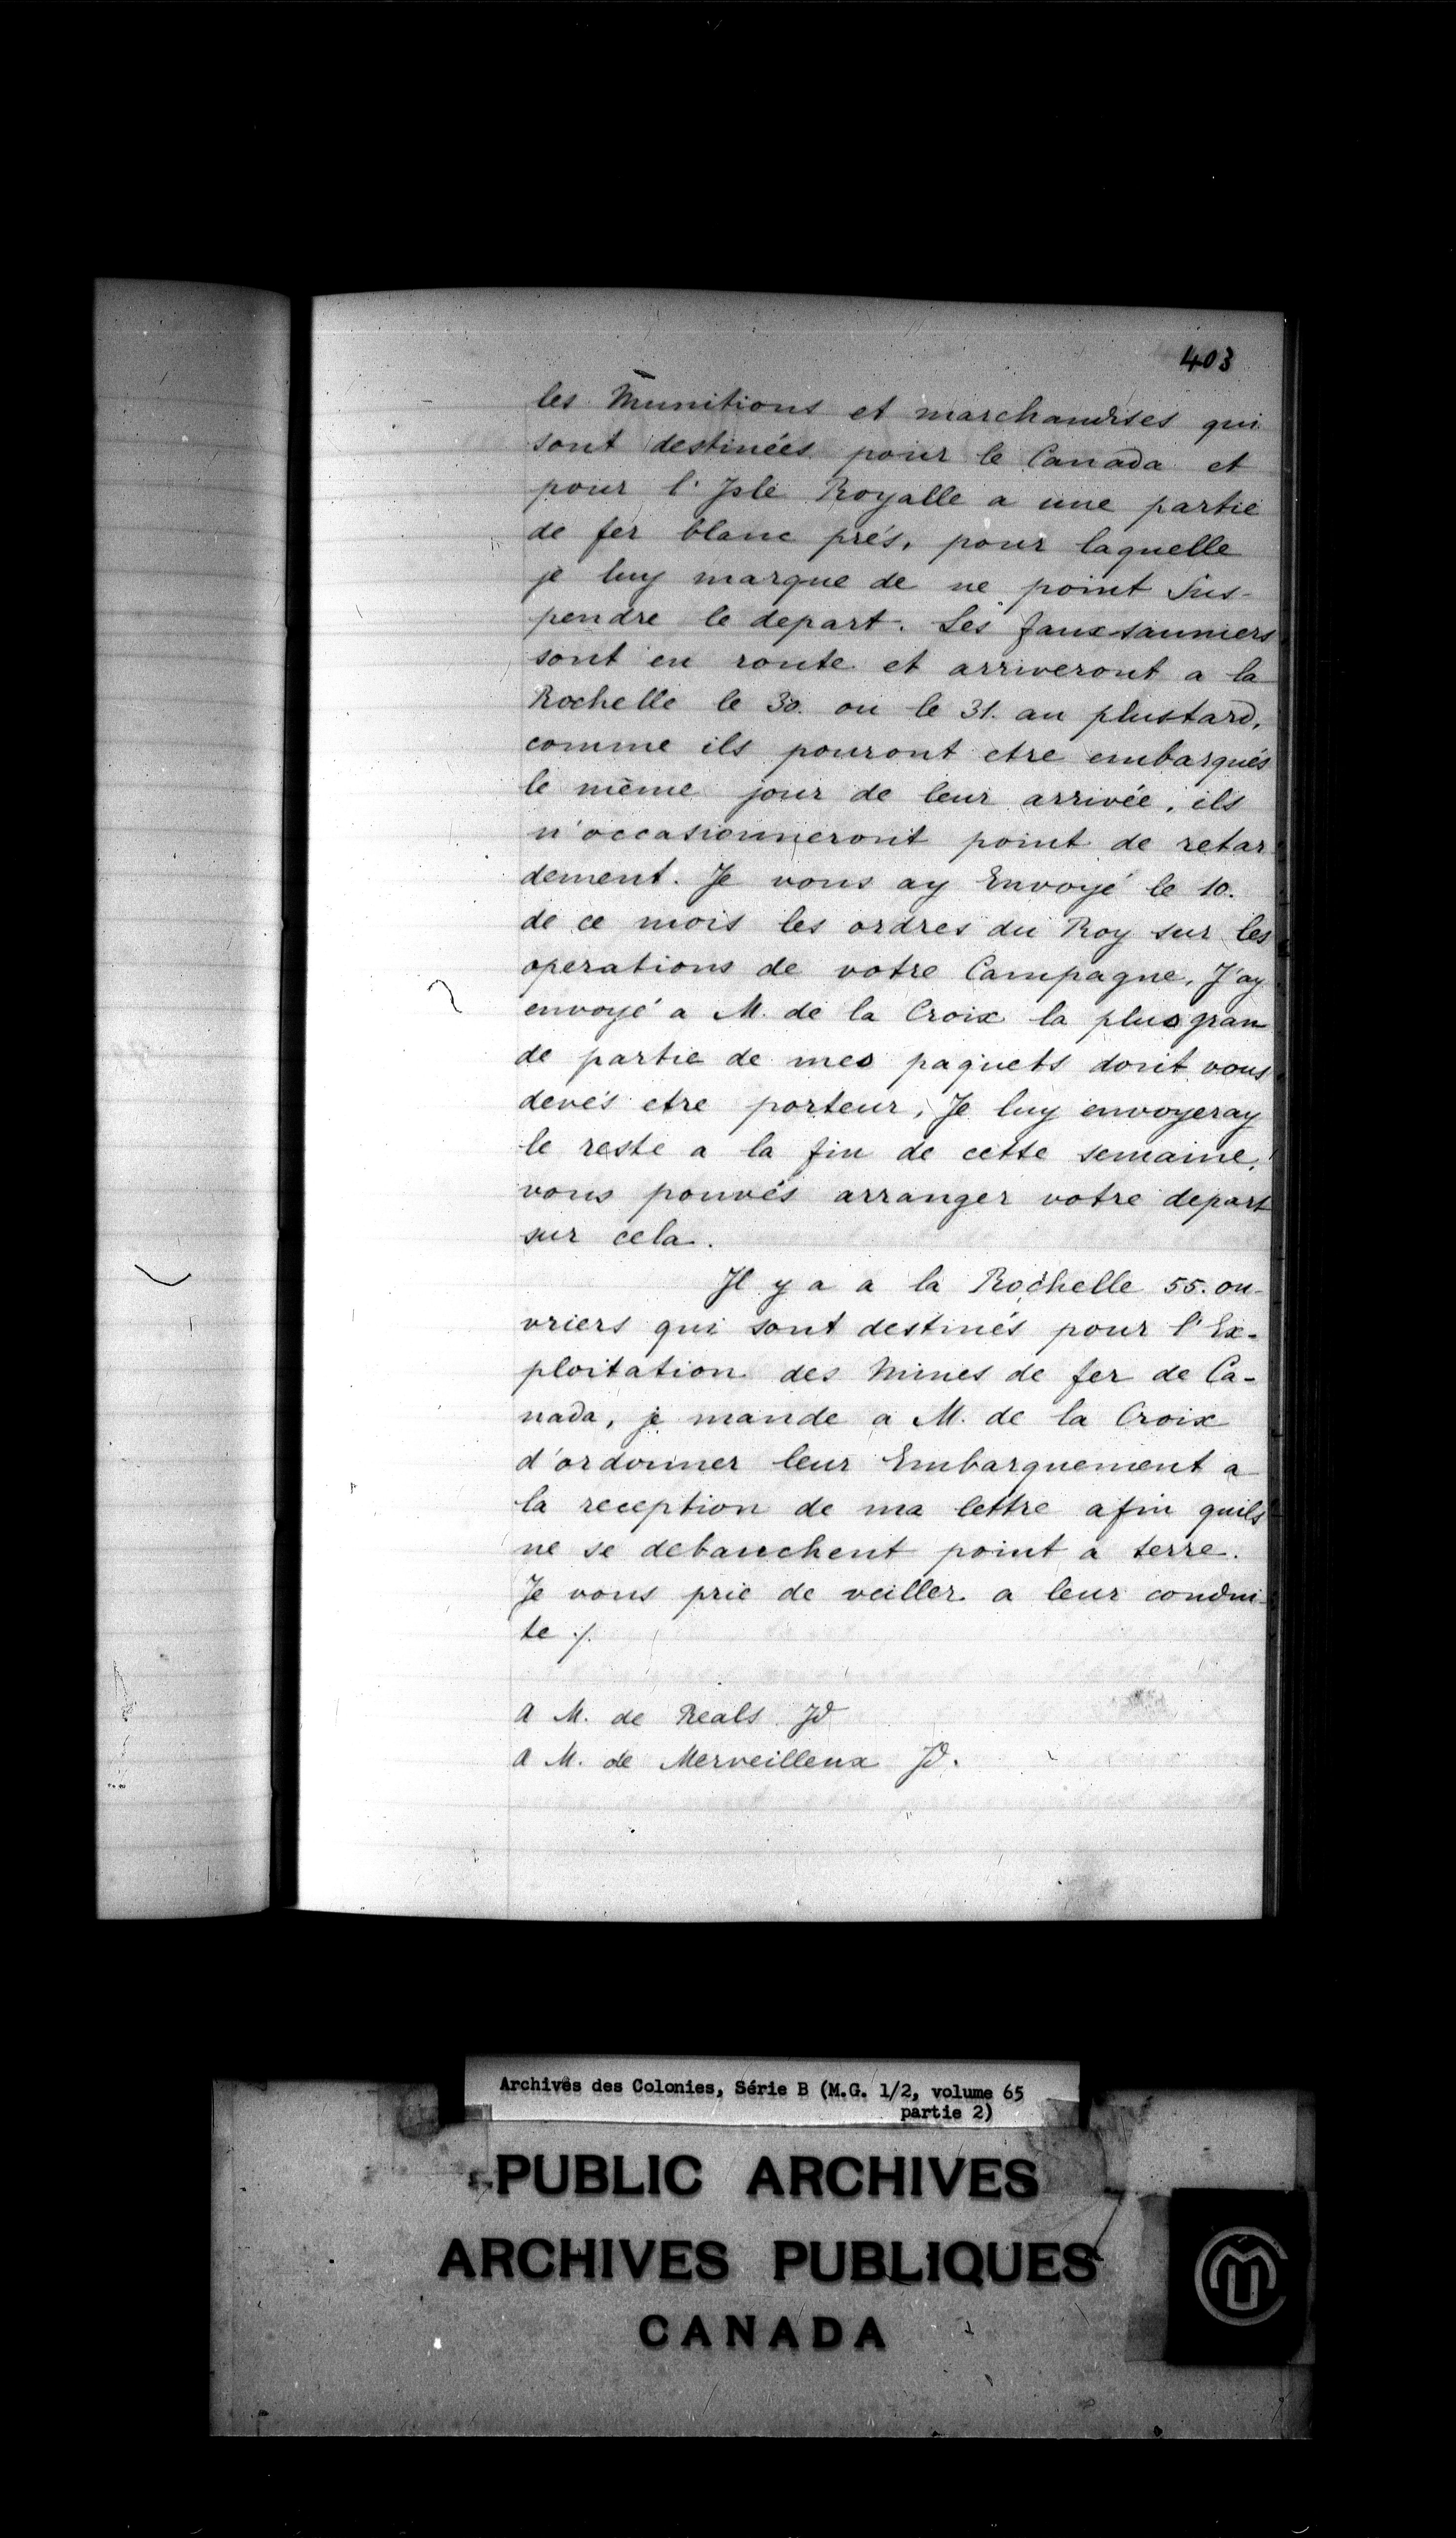 403
les Munitions et marchandises qui
sont destinées pour le Canada et
pour l'Isle Royalle a une partie
de fer blanc prés, pour laquelle
je luy marque de ne point Sus-
pendre le depart. Les faux-sauniers
sont en route et arriveront a la
Rochelle le 30. ou le 31. au plustard,
comme ils pouront etre embarqués
le même jour de leur arrivée, ils
n'occasionneront point de retar
dement. Je vous ay Envoyé le 10.
de ce mois les ordres du Roy sur les
operations de votre Campagne, J'ay
envoyé a M. de la Croix la plus gran
de partie de mes paquets dont vous
devés etre porteur, Je luy envoyeray
le reste a la fin de cette semaine,
vous pouvés arranger votre depart
sur cela.
Il y a a la Rochelle 55. ou-
vriers qui sont destinés pour l'Ex-
ploitation des Mines de fer de Ca-
nada, je mande a M. de la Croix
d'ordonner leur Embarquement a
la reception de ma lettre afin quils
ne se debauchent point a terre.
Je vous prie de veiller a leur condui-
te ./.
A M. de Reals Id
A M. de Merveilleux Id.
Archives des Colonies, Série B (M.G. 1/2, volume 65
partie 2)
PUBLIC ARCHIVES
ARCHIVES PUBLIQUES
CANADA